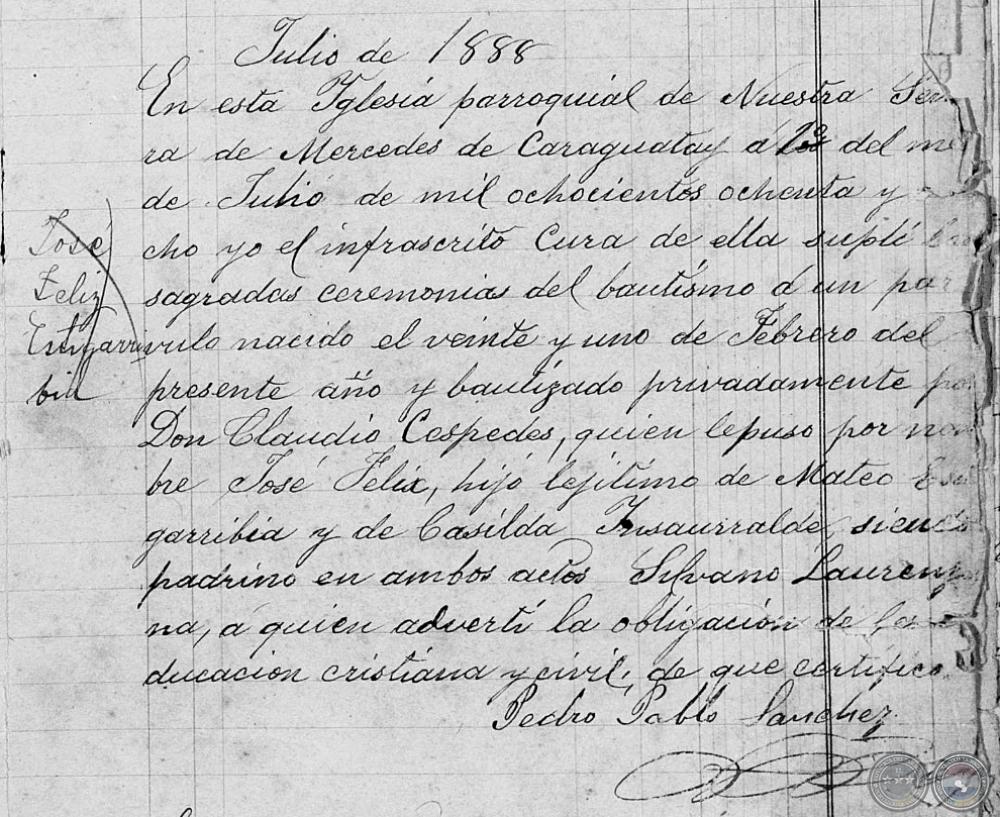 Julio de 1888
En esta Iglesia parroquial de Nuestra Seño
ra de Mercedes de Caraguatay a 1º del mes
de Julio de mil ochocientos ochenta y
cho yo el infrascrito Cura de ella suplí las
sagradas ceremonias del bautismo a un par
vulo nacido el veinte y uno de Febrero del
presente año y bautizado privadamente por
Don Claudio Cespedes, quien lepuso por nom
bre José Felix, hijo lejitimo de Mateo Esti
garribia y de Casilda Insaurralde, siendo
padrino en ambos actos Silvano Lauren
na, a quien advertí la obligación de la e
ducacion cristiana y civil, de que certifico.
Pedro Pablo Sanchez
José
Feliz
Estigarri
bia